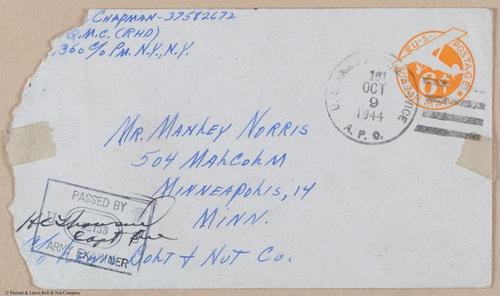 . CHAPMAN-37582672
Q.M.C. (RHD)
360 C/O PM. N.Y., N.Y.
U.S. POSTAGE
6¢
AIR MAIL
U.S. SERVICE
181
OCT
9
1944
A.P.O.
MR. MANLEY NORRIS
504 MALCOLM
MINNEAPOLIS, 14
MINN.
C/O LEWIS BOLT & NUT CO.
PASSED BY
ARMY EXAMINER
Capt
© Forester & Lewis Bolt & Nut Company